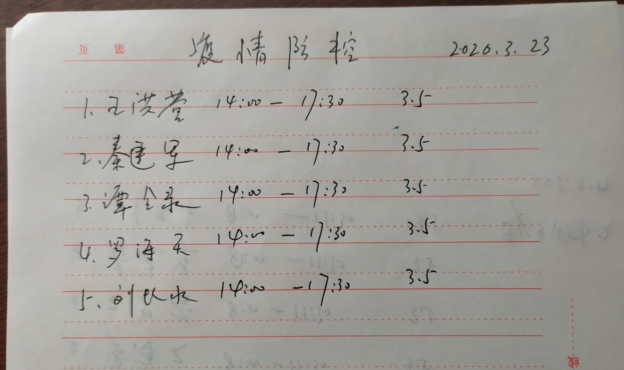 疫情防控 2020.3.23
1.王洪营 14:00-17:30 3.5
2.秦建军 14:00-17:30 3.5
3.谭全录 14:00-17:30 3.5
4.罗海天 14:00-17:30 3.5
5.刘长水 14:00-17:30 3.5
线